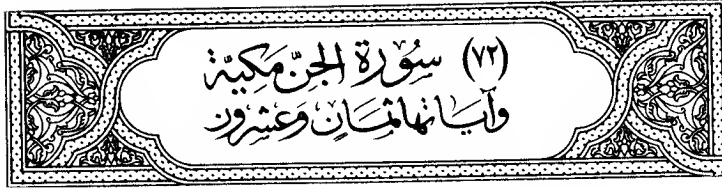 (٧٢) سُوْرَة الجِنّ مَكِيَّة
وَآيَاتهَا ثَمَانٍ وَعِشْرُون